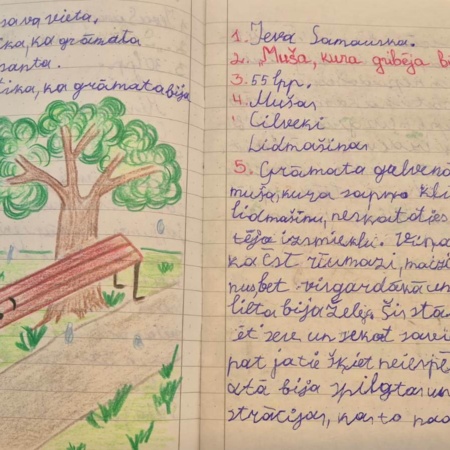 sava vieta,
ka grāmata
tika, ka grāmata bija
1. Ieva Samauska.
2. "Muša, kura gribēja b
3. 55 lpp.
4. Mušas
Cilvēki
Lidmašīnas
5. Grāmata galveno
muša, kura sapņo kļū
lidmašīnu, neskatoties
izsmiekli. Viņa
ka ēst rīvmaizi, maizi
nusbet virgardākā un
lieta bija želeja. Šis stā
ēt sere un sekot savei
pat ja tie šķiet neiespē
atā bija spilgtas un
strācijas, kas to pad